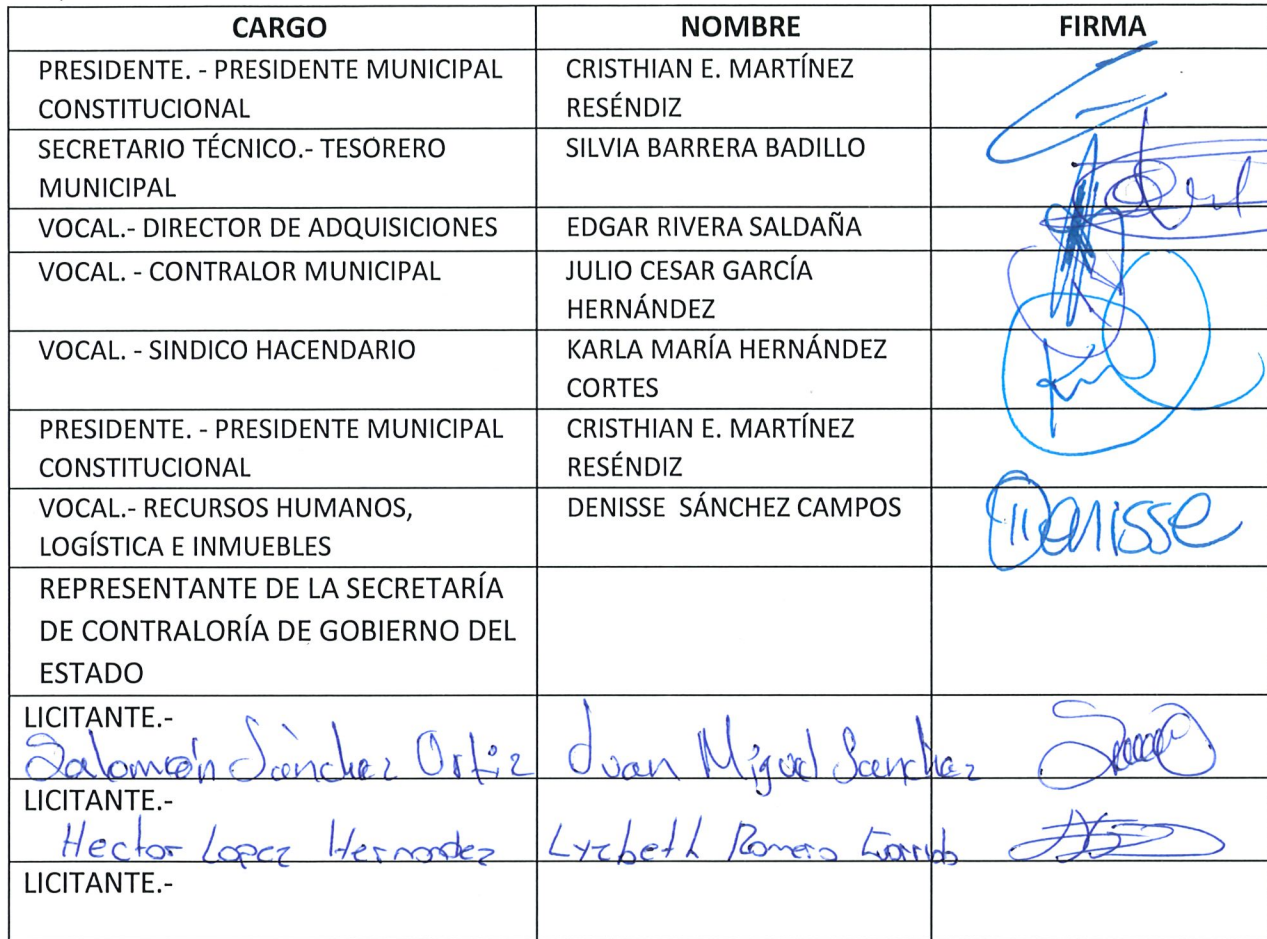 CARGO NOMBRE FIRMA
PRESIDENTE. - PRESIDENTE MUNICIPAL CRISTHIAN E. MARTÍNEZ
CONSTITUCIONAL RESÉNDIZ
SECRETARIO TÉCNICO.- TESORERO SILVIA BARRERA BADILLO
MUNICIPAL
VOCAL.- DIRECTOR DE ADQUISICIONES EDGAR RIVERA SALDAÑA
VOCAL. - CONTRALOR MUNICIPAL JULIO CESAR GARCÍA
HERNÁNDEZ
VOCAL. - SINDICO HACENDARIO KARLA MARÍA HERNÁNDEZ
CORTES
PRESIDENTE. - PRESIDENTE MUNICIPAL CRISTHIAN E. MARTÍNEZ
CONSTITUCIONAL RESÉNDIZ
VOCAL.- RECURSOS HUMANOS, DENISSE SÁNCHEZ CAMPOS Denisse
LOGÍSTICA E INMUEBLES
REPRESENTANTE DE LA SECRETARÍA
DE CONTRALORÍA DE GOBIERNO DEL
ESTADO
LICITANTE.-
Salomón Sánchez Ortiz Juan Miguel Sanchez
LICITANTE.-
Hector Lopez Hernandez Lyzbeth Romero Garrido
LICITANTE.-